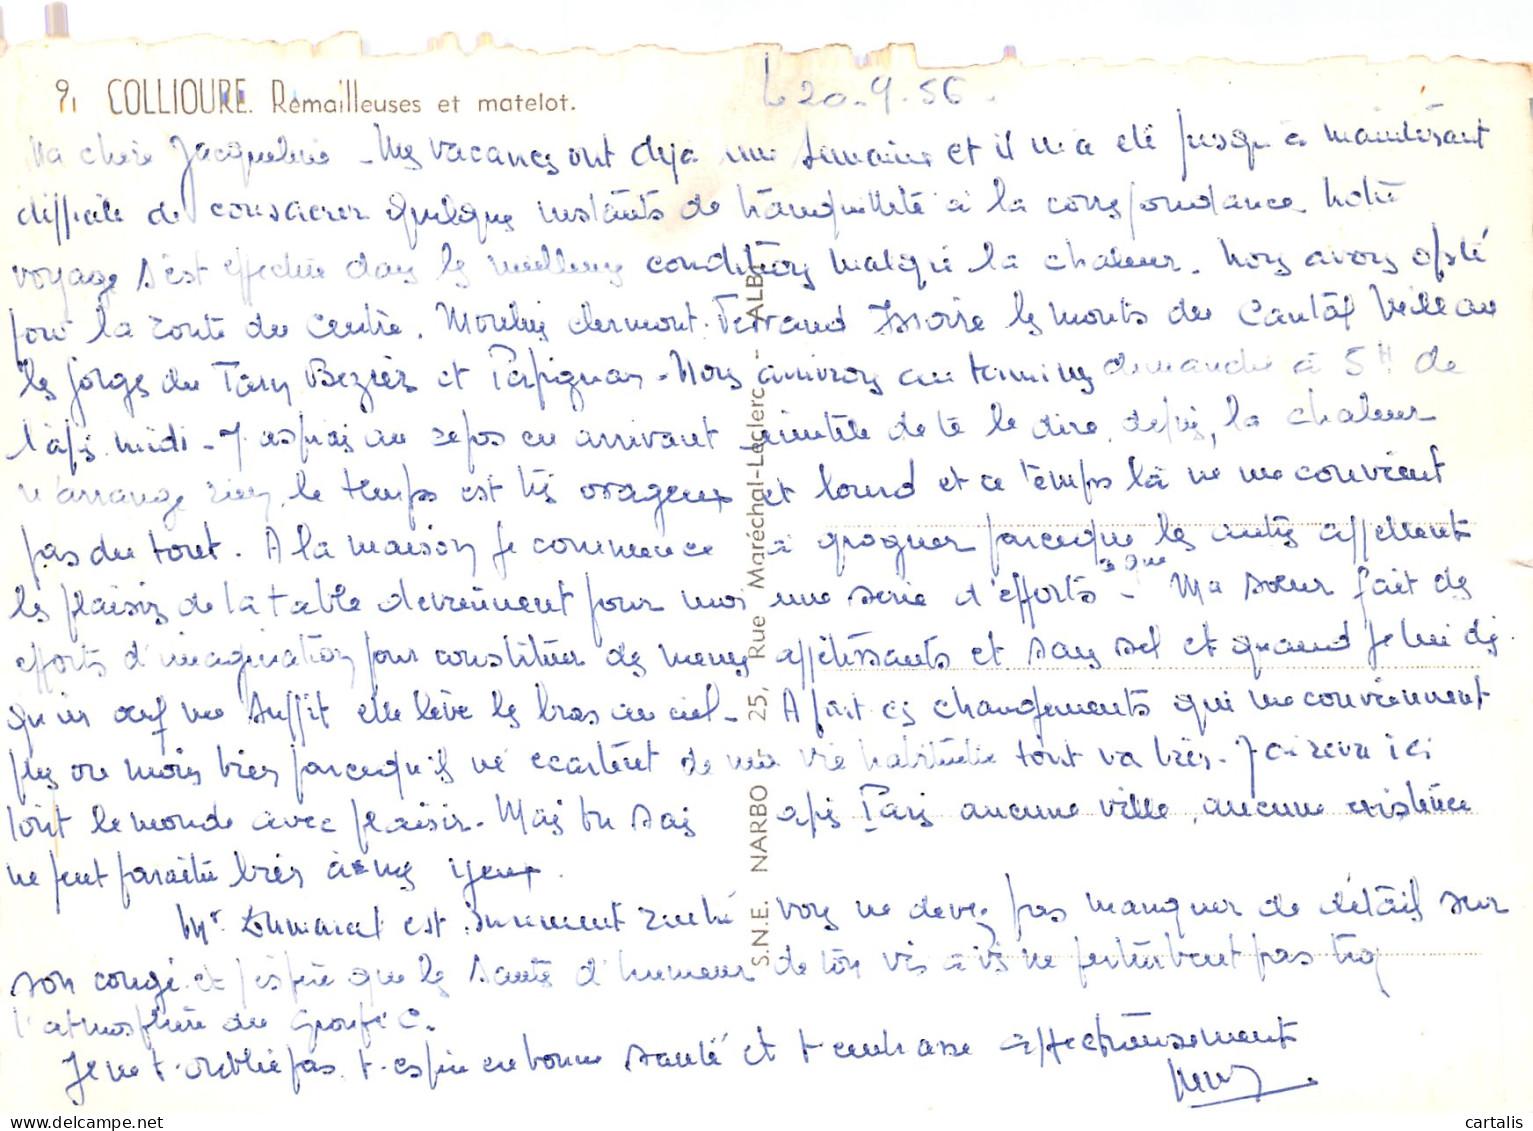 9. COLLIOURE. Remailleuses et matelot.
Le 20.9.56.
Ma chère Jacqueline - Mes vacances ont déjà une semaine et il m'a été jusqu'à maintenant
difficile de consacrer quelques instants de tranquillité à la correspondance. Notre
voyage s'est effectué dans les meilleures conditions malgré la chaleur. Nous avons opté
pour la route du centre. Moulins Clermont-Ferrand Issoire les monts du Cantal Millau
les gorges du Tarn Beziers et Perpignan - Nous arrivons au terminus dimanche à 5H de
l'après midi - J'aspirais au repos en arrivant inutile de te le dire, depuis, la chaleur
n'arrange rien, le temps est très orageux et lourd et ce temps là ne me convient
pas du tout. A la maison je commence à grogner parceque les autres appellent
les plaisirs de la table deviennent pour moi une série d'efforts - Ma soeur fait des
ce que
efforts d'imagination pour constituer des menus appétissants et sans sel et quand je lui dis
qu'un oeuf me suffit elle lève les bras au ciel - A part ces changements qui me conviennent
plus ou moins bien parcequ'ils m'écartent de ma vie habituelle tout va bien. J'ai revu ici
tout le monde avec plaisir. Mais tu sais après Paris aucune ville, aucune existence
ne peut paraître bien à mes yeux.
Mr est sûrement rentré vous ne devez pas manquer de détails sur
son congé et j'espère que les sautes d'humeur de ton vis à vis ne perturbent pas trop
l'atmosphère du Groupe C.
Je ne t'oublie pas, t'espère en bonne santé et t'embrasse affectueusement
S.N.E. NARBO - 25, Rue Maréchal-Leclerc - ALBI
cartalis.com